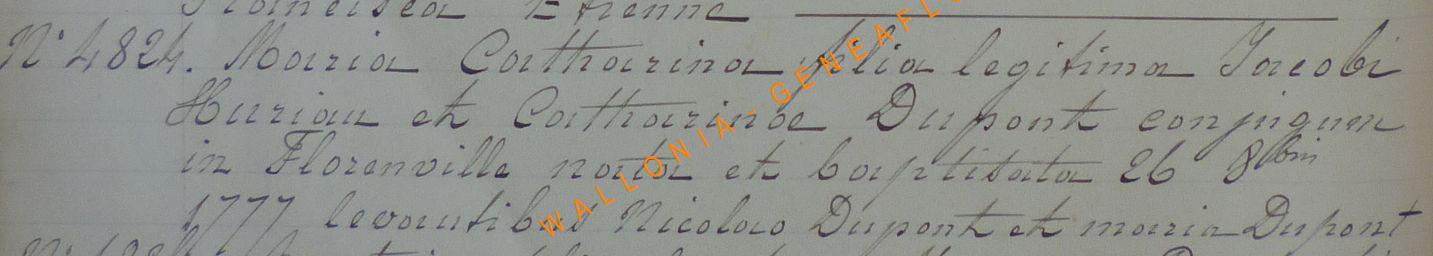 Francisca Etienne
N° 4824. Maria Catharina filia legitima Jacobi
Huriau et Catharinae Dupont conjugum
in Florenville nata et baptisata 26 8bris
1777 levantibus Nicolao Dupont et maria Dupont
WALLONIA - GENEAFL